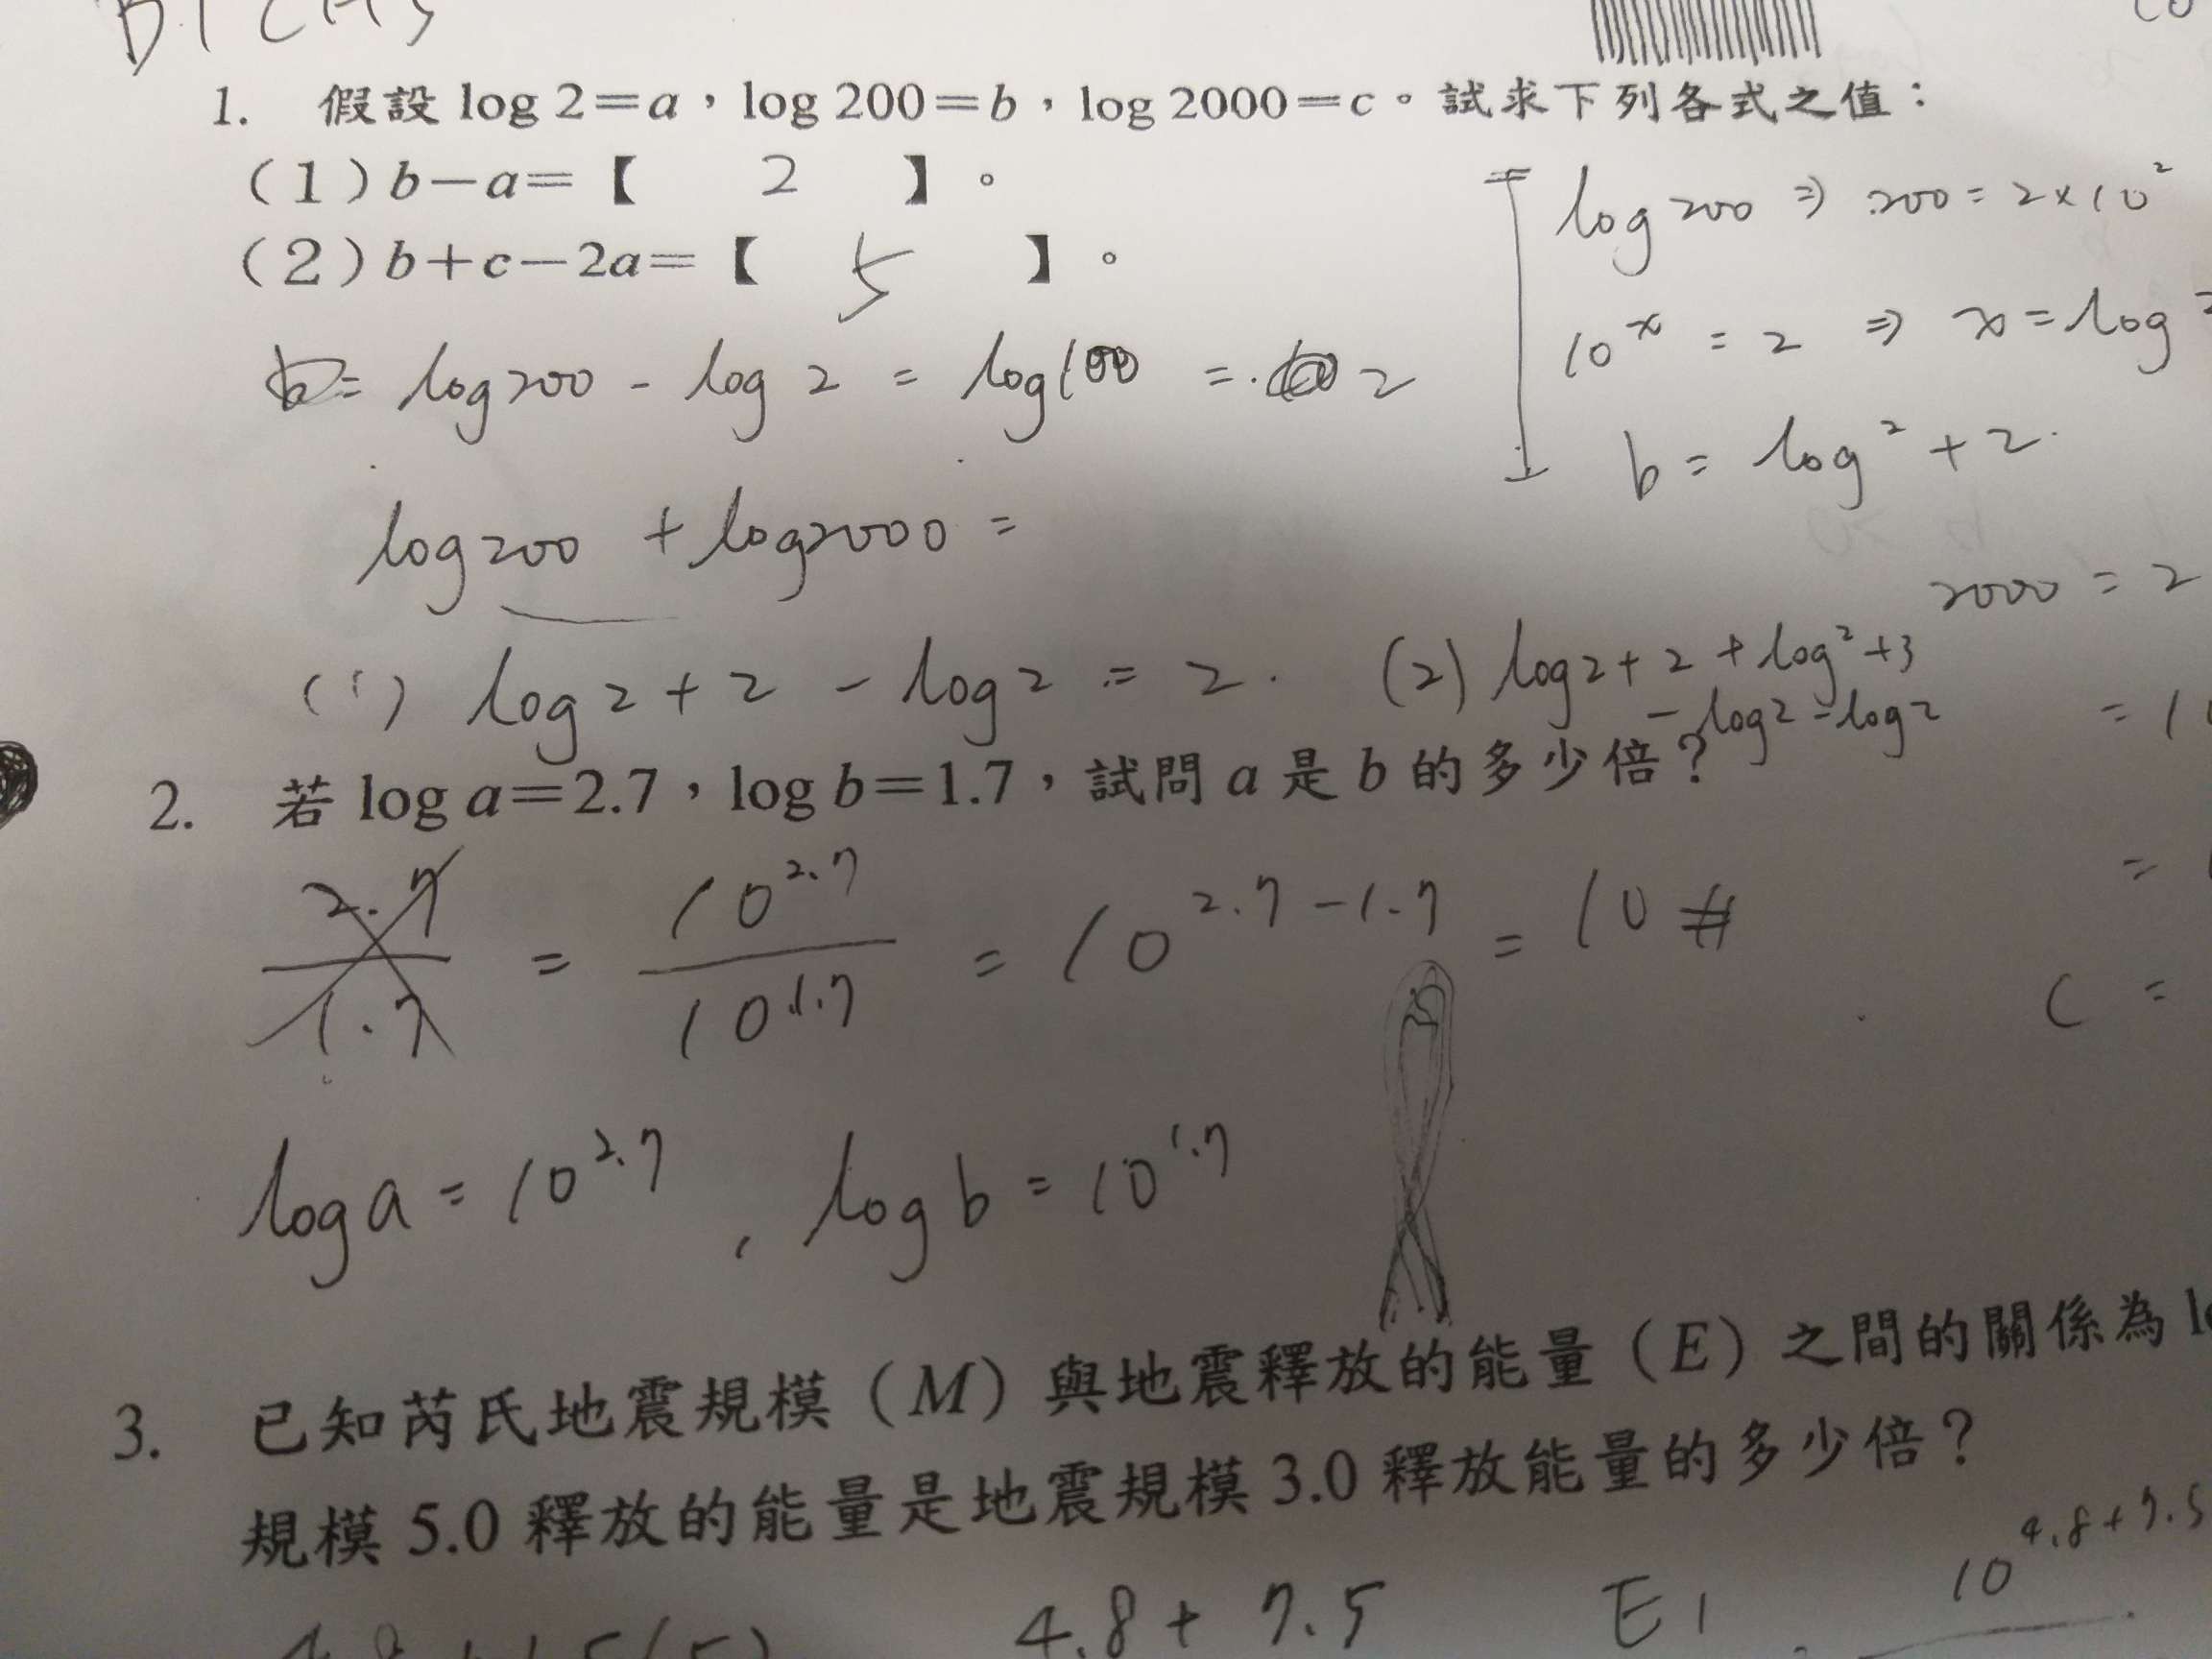 1. 假設 log 2=a,log 200=b,log 2000=c。試求下列各式之值:
(1)b-a=【 2 】。
(2)b+c-2a=【 5 】。
log 200 ⇒ 200 = 2×10²
10ˣ = 2 ⇒ x = log
b = log 2 + 2.
= log 200 - log 2 = log 100 = 2
log 200 + log 2000 =
2000 = 2
(1) log 2 + 2 - log 2 = 2. (2) log 2 + 2 + log 2 + 3
- log 2 - log 2
2. 若 log a=2.7,log b=1.7,試問 a 是 b 的多少倍?
2.7/1.7 = 10^2.7/10^1.7 = 10^2.7-1.7 = 10 #
c =
log a = 10^2.7 , log b = 10^1.7
3. 已知芮氏地震規模(M)與地震釋放的能量(E)之間的關係為
規模 5.0 釋放的能量是地震規模 3.0 釋放能量的多少倍?
4.8 + 7.5 E1 10^4.8+7.5